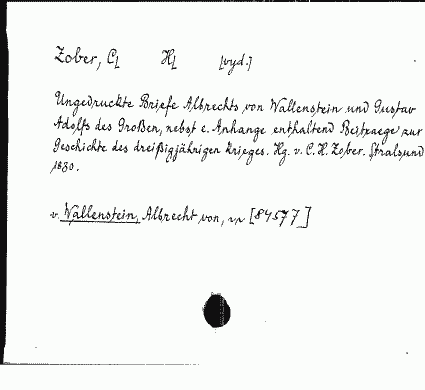 Zober, C. H. [vyd.]
Ungedruckte Briefe Albrechts von Wallenstein und Gustav
Adolfs des Großen, nebst e. Anhange enthaltend Beitraege zur
Geschichte des dreißigjährigen Krieges. Hg. v. C. H. Zober. Stralsund
1830.
v. Wallenstein, Albrecht von, [84577]